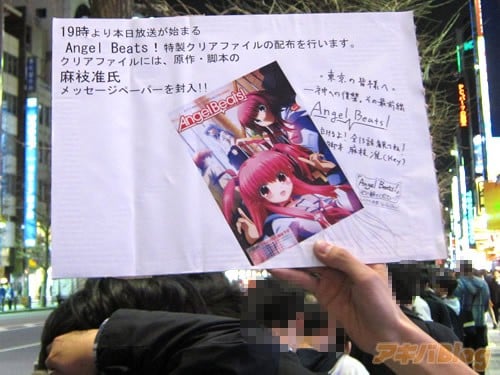 19時より本日放送が始まる
Angel Beats！特製クリアファイルの配布を行います。
クリアファイルには、原作・脚本の
麻枝准氏
メッセージペーパーを封入!!
Angel Beats!
・東京の皆様へ・
―神への復讐。その最前線
Angel Beats!
全13話観てね!
脚本 麻枝 准(Key)
Angel Beats!
アキバBlog